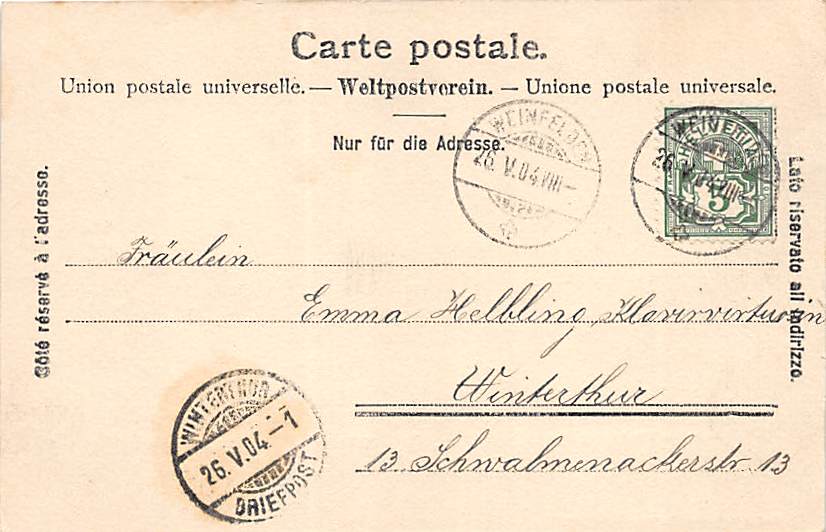 Carte postale.
Union postale universelle. — Weltpostverein. — Unione postale universale.
Nur für die Adresse.
WEINFELDEN
26.V.04.VIII–
HELVETIA
5
26.V.04.VIII–
Côté réservé à l'adresse.
Lato riservato all indirizzo.
Fräulein
Emma Helbling, Klaviervirtuosin
Winterthur
13. Schwalmenackerstr. 13
WINTERTHUR
26.V.04–1
BRIEFPOST